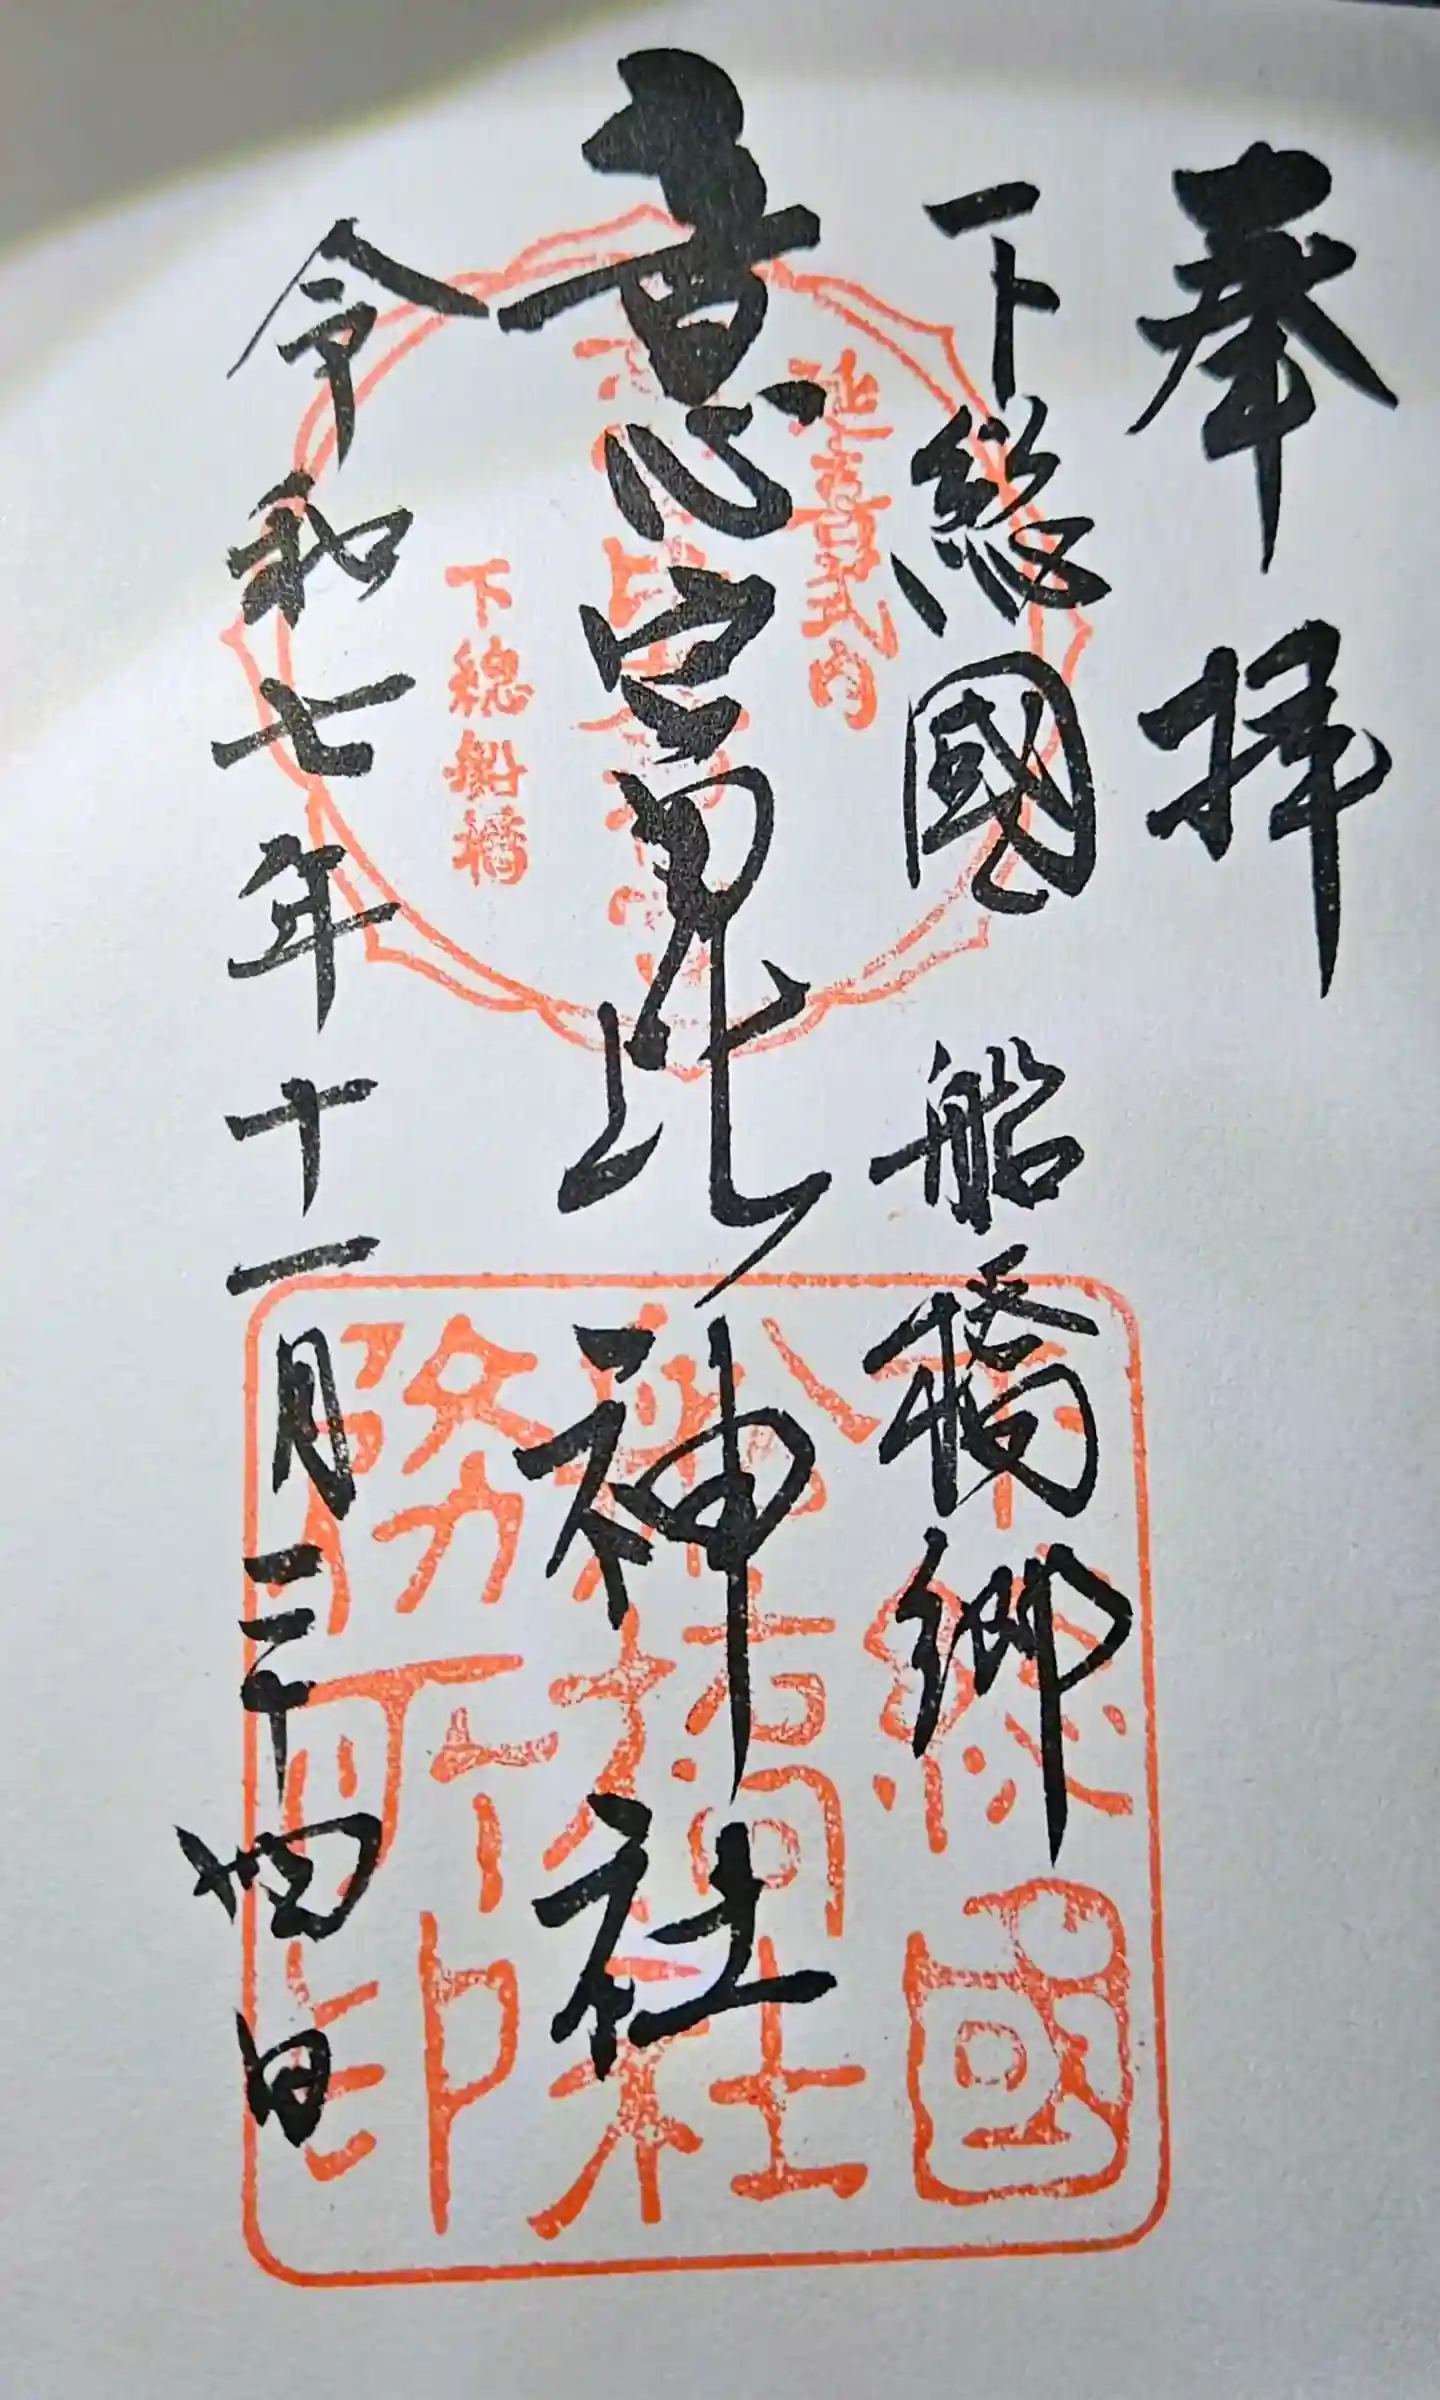 奉拝
下総國 船橋郷
意富比神社
令和七年十一月二十四日
延喜式内
下総船橋
下総國
船橋社
務所印